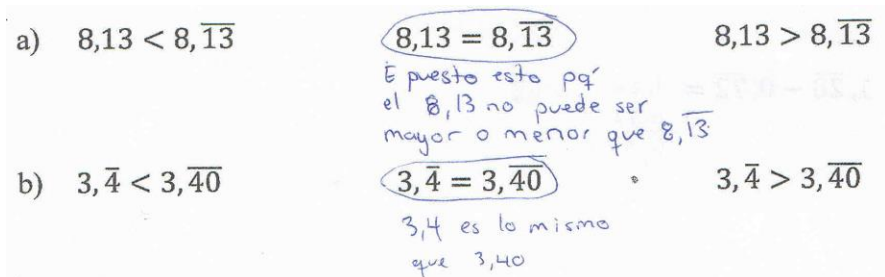 a) 8,13 < 8,\overline{13} 8,13 = 8,\overline{13} 8,13 > 8,\overline{13}
E puesto esto pq'
el 8,13 no puede ser
mayor o menor que 8,\overline{13}
b) 3,\overline{4} < 3,\overline{40} 3,\overline{4} = 3,\overline{40} 3,\overline{4} > 3,\overline{40}
3,4 es lo mismo
que 3,40